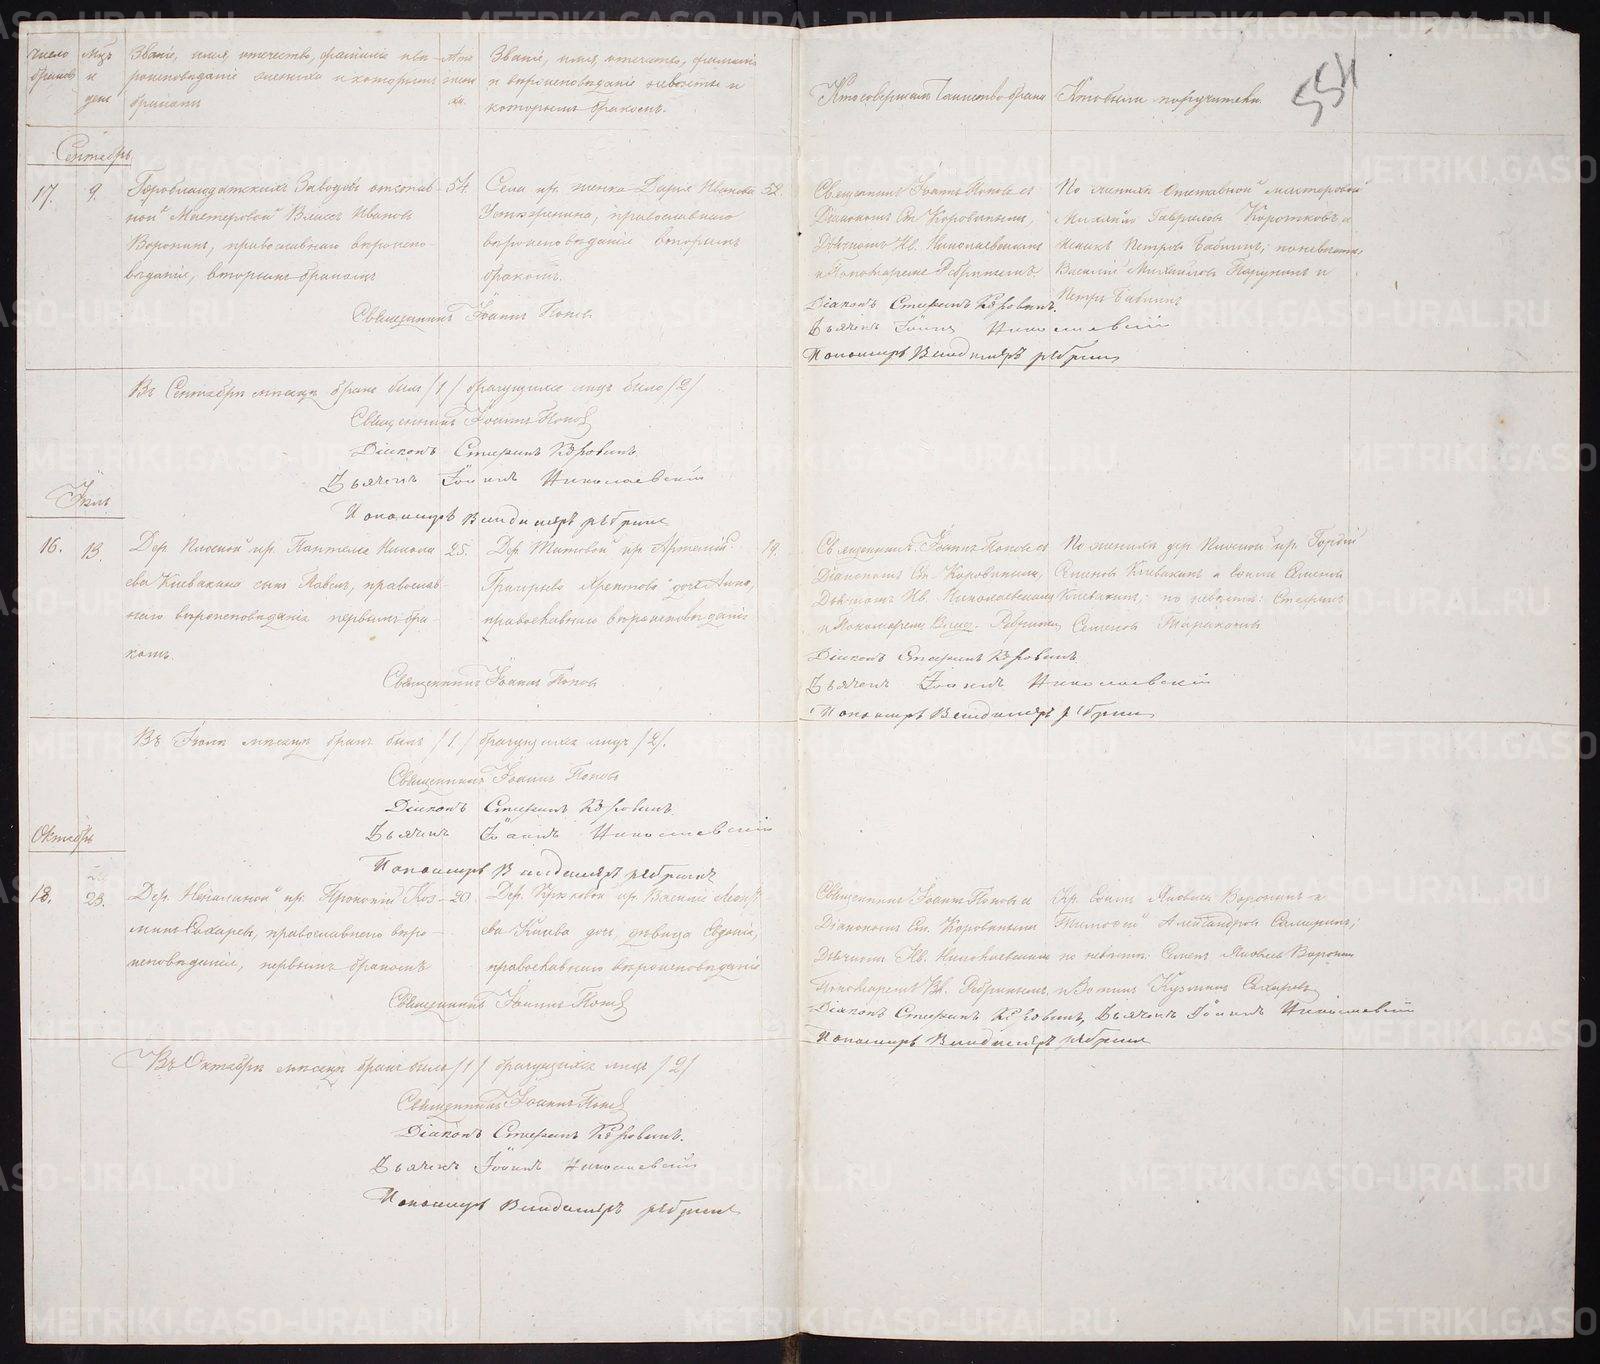 Число браковъ
Мцъ и день
Званіе, имя, отчество, фамилія и вѣ-
роисповѣданіе жениха и которымъ
бракомъ
Лѣта жени-
ха.
Званіе, имя, отчество, фамилія
и вѣроисповѣданіе невѣсты и
которымъ бракомъ.
Кто совершалъ Таинство брака
Кто были поручители.
554
Сентябрь
17. 9.
Гороблагодатскихъ Заводовъ отстав-
ной Мастеровой Власъ Ивановъ
Воронинъ, православнаго вѣроиспо-
вѣданія, вторымъ бракомъ
54
Села кр. женка Дарія Иванова
православнаго
вѣроисповѣданія вторымъ
бракомъ.
52.
Священникъ Іоаннъ Поповъ съ
Діакономъ Ст. Коровинымъ,
Дьячкомъ Ив. Николаевскимъ
и Пономаремъ Ребринымъ
По женихѣ Отставной мастеровой
Михайло Гавриловъ Коротковъ и
Петровъ Бабинъ; по невѣстѣ
Василій Михайловъ и
Петръ Бабинъ
Священникъ Іоаннъ Поповъ
Діаконъ Стефанъ Коровинъ.
Дьячекъ Іоаннъ Николаевскій
Пономарь Владиміръ Ребринъ
Въ Сентябрѣ мѣсяцѣ бракъ былъ /1/ брачущихся лицъ было /2/
Священникъ Іоаннъ Поповъ
Діаконъ Стефанъ Коровинъ
Дьячекъ Іоаннъ Николаевскій
Пономарь Владиміръ Ребринъ
Іюль
16. 13.
Дер. кр. Пантелея
ева Клевакина сынъ Павелъ, православ-
наго вѣроисповѣданія первымъ бра-
комъ.
25.
Дер. Титовой кр. Артемій
Григорьева дочь Анна,
православнаго вѣроисповѣданія
19.
Священникъ Іоаннъ Поповъ съ
Діакономъ Ст. Коровинымъ,
Дьячкомъ Ив. Николаевскимъ
и Пономаремъ Влад. Ребринымъ
По женихѣ дер. кр. Гордій
Семеновъ Клевакинъ и Семеновъ
Клевакинъ; по невѣстѣ: Стефанъ
Семеновъ Таракановъ
Священникъ Іоаннъ Поповъ
Діаконъ Стефанъ Коровинъ.
Дьячекъ Іоаннъ Николаевскій
Пономарь Владиміръ Ребринъ
Въ Іюлѣ мѣсяцѣ бракъ былъ /1/ брачущихся лицъ /2/.
Священникъ Іоаннъ Поповъ
Діаконъ Стефанъ Коровинъ.
Дьячекъ Іоаннъ Николаевскій
Пономарь Владиміръ Ребринъ
Октябрь
18. 23.
Дер. кр. Прокопій Коз-
минъ Сохаревъ, православнаго вѣро-
исповѣданія, первымъ бракомъ
20
Дер. кр.
дочь дѣвица Евдокія,
православнаго вѣроисповѣданія
Священникъ Іоаннъ Поповъ съ
Діакономъ Ст. Коровинымъ
Дьячкомъ Ив. Николаевскимъ
Пономаремъ Вл. Ребринымъ
Кр. Яковлевъ Воронинъ и
Тимофей Александровъ
по невѣстѣ: Семенъ Яковлевъ Воронин
и Кузминъ Сохаревъ
Священникъ Іоаннъ Поповъ
Діаконъ Стефанъ Коровинъ, Дьячекъ Іоаннъ Николаевскій
Пономарь Владиміръ Ребринъ
Въ Октябрѣ мѣсяцѣ бракъ былъ /1/ брачущихся лицъ /2/
Священникъ Іоаннъ Поповъ
Діаконъ Стефанъ Коровинъ.
Дьячекъ Іоаннъ Николаевскій
Пономарь Владиміръ Ребринъ
METRIKI.GASO-URAL.RU